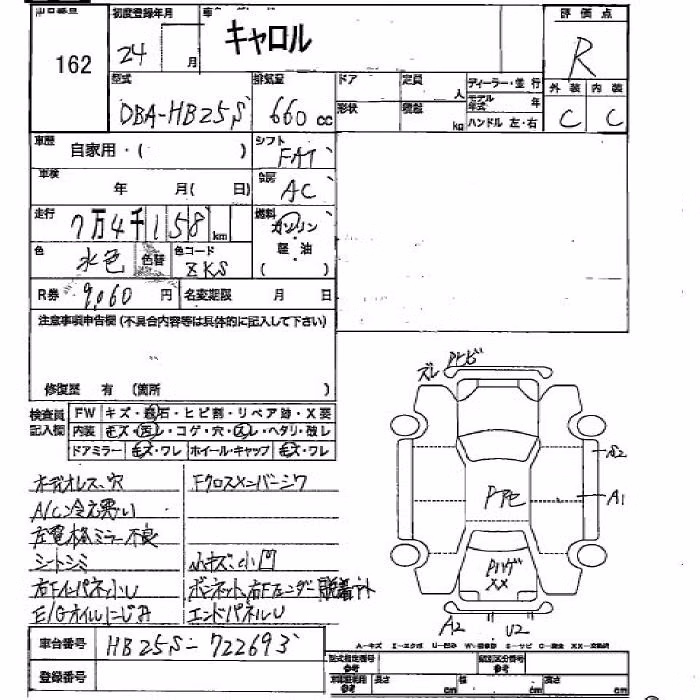 初度登録年月 評価点
162 24 月 キャロル R
型式 排気量 ドア 定員 ディーラー・並行 外装 内装
DBA-HB25S 660cc 形状 積載 人 モデル年式 年 C C
kg ハンドル 左・右
車歴 自家用・( ) シフト FAT
車検 年 月( 日) 冷房 AC
走行 7万4千158km 燃料 ガソリン
色 水色 色替 色コード ZKS 軽油
( )
R券 9,060円 名変期限 月 日
注意事項申告欄(不具合内容等は具体的に記入して下さい)
修復歴 有 (箇所 )
検査員 FW キズ・飛石・ヒビ割・リペア跡・X要
記入欄 内装 キズ・汚レ・コゲ・穴・スレ・ヘタリ・破レ
ドアミラー キズ・ワレ ホイール・キャップ キズ・ワレ
オーディオレス、穴 Fクロスメンバー
A/C冷え悪い
左電格ミラー不良
シートシミ 小キズ、小凹
右FインパネルU ボンネット、右Fフェンダー脱着
E/Gオイルにじみ エンドパネルU
ズレ
A2
A1
Pハゲ
XX
A2 U2
A-キズ U-凹み
車台番号 HB25S-722693
型式指定番号 類別区分番号
参考 参考
登録番号 長さ cm 幅 cm 高さ cm
参考